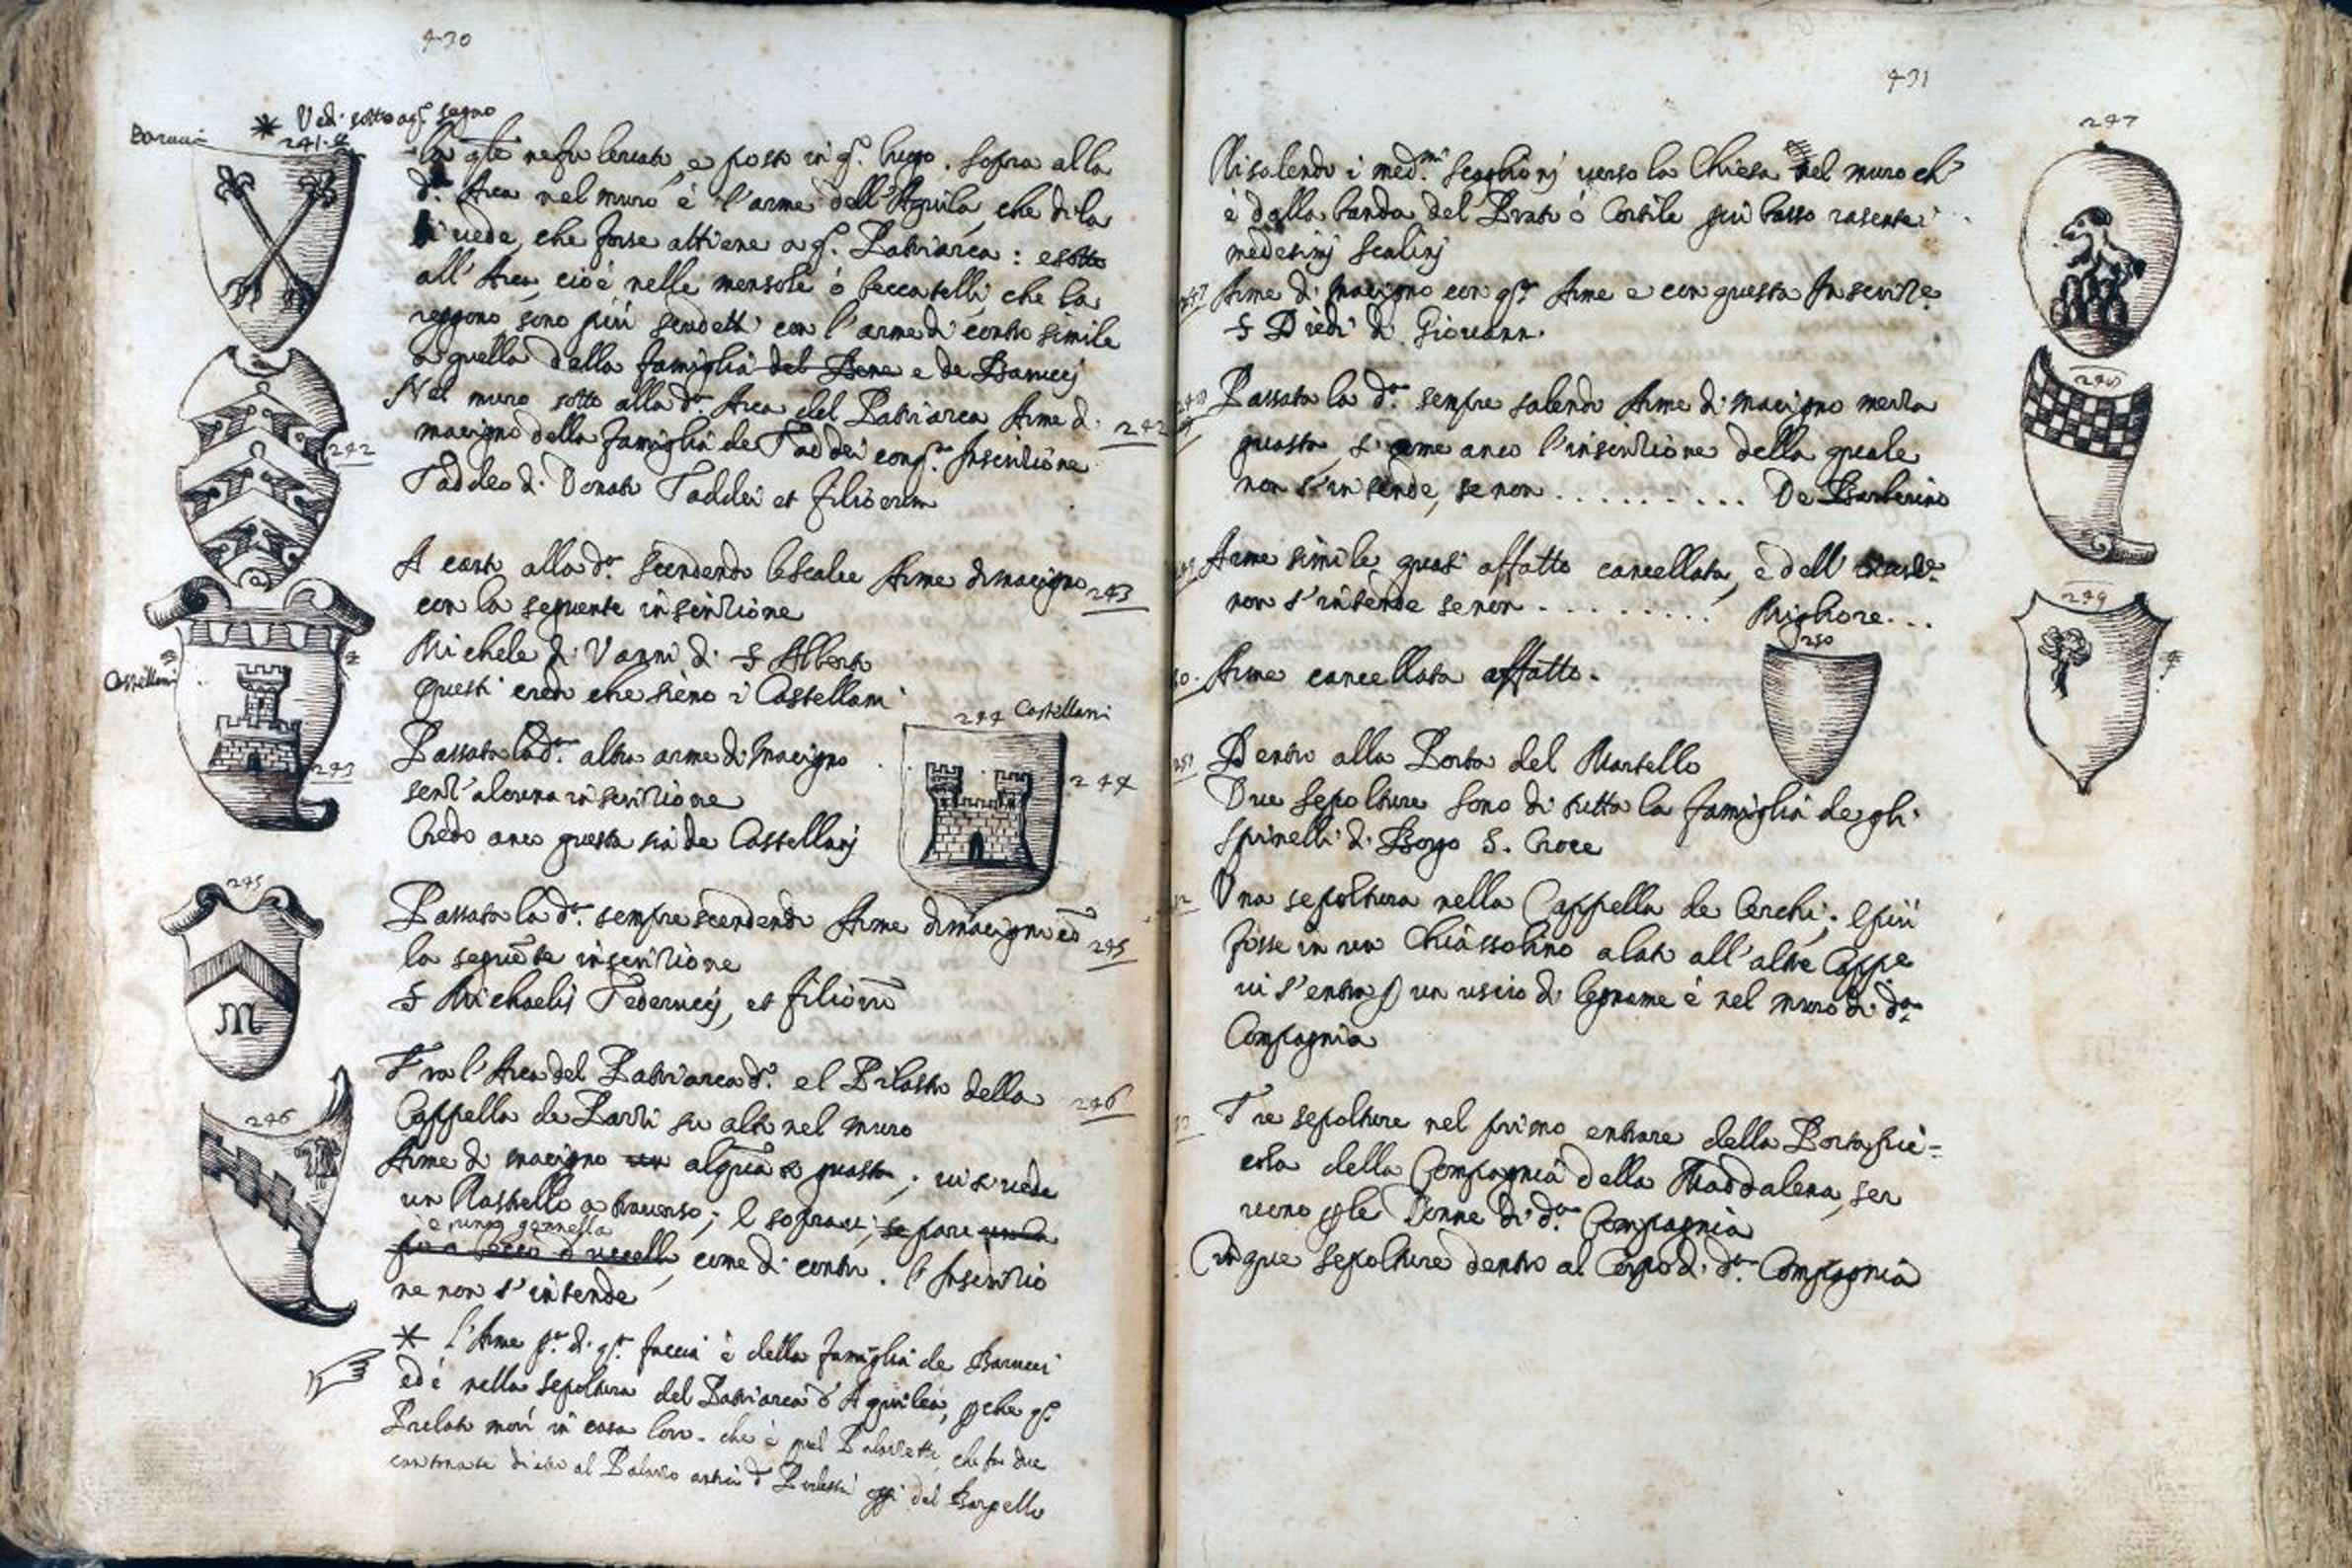 430
* Vedi sotto a q.º segno
Barucci
241
la q̃le ne fu levata, e posta in q.º luogo. sopra alla
d.ª Arca nel muro è l'arme dell'Aquila, che di la
si vede, che forse attiene a q.º Patriarca: e sotto
all'Arca, cioè nelle mensole ò beccatelli, che la
reggono, sono più scudetti con l'arme di contro simile
a quella della famiglia del Bene e de Barucci
Nel muro sotto alla d.ª Arca del Patriarca Arme di 242
macigno della famiglia de Taddei con q.ª Inscritione
Taddeo di Donato Taddei et filiorum
242
A canto alla d.ª scendendo le scalee Arme di macigno 243
con la seguente inscritione
Michele di Vanni di S Alberto
Questi credo che sieno i Castellani
Castellani
243
244 Castellani
Passata la d.ª altra arme di macigno
senz'alcuna inscritione 244
Credo anco questa sia de Castellanj
245
Passata la d.ª sempre scendendo Arme di macigno cõ 245
la seguẽte inscritione
S Michaelis Federucij, et filiorũ
Fra l'Arca del Patriarca d.º el Pilastro della 246
Cappella de Pazzi su alto nel muro
246
Arme di macigno un alquãto guasta; vi si vede
un Rastrello a traverso; e sopravi, se pare un la
come di contro. l'Inscritio
ne non s'intende
* l'Arme p.ª di q.ª faccia è della famiglia de Barucci
ed è nella sepoltura del Patriarca d'Aquilea, pche q.º
Prelato morì in casa loro. che è quel Palazzetto, che fa due
cantonate dicontro al Palazzo antico d Podestà oggi del Bargello
431
Risalendo i med.mi scaglionj verso la Chiesa nel muro ch'
è dalla banda del Prato ò Cortile più basso rasente i
medesimj scalinj
247 Arme di macigno con q.ª Arme e con questa Inscritio.e
S Diedi di Giovann.
247
Passata la d.ª sempre salendo Arme di macigno mezza
guasta, si come anco l'inscritione della quale
non s'intende, se non . . . . . . . . . De Barberino
248
Arme simile quasi affatto cancellata, e dell'
non s'intende se non . . . . . . . . Migliore...
249
Arme cancellata affatto.
250
Dentro alla Porta del Martello
Due sepolture sono di tutta la famiglia degli
Spinelli di Borgo S. Croce
Una sepoltura nella Cappella de Cerchi; e più
fosse in un chiassolino alato all'altre Cappe
vi s'entra p un uscio di legname è nel muro di d.ª
Compagnia
Tre sepolture nel primo entrare della Porta pic=
cola della Compagnia della Maddalena, ser
vono p le Donne di d.ª Compagnia
Cinque sepolture dentro al Corpo di d.ª Compagnia